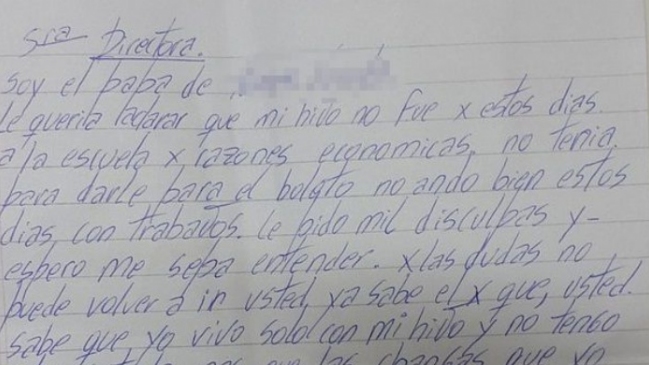 Sra Directora.
Soy el papa de
le queria adarar que mi hiJo no fue x estos dias.
a la escuela x razones economicas, no tenia
para darle para el boleto no ando bien estos
dias, con trabaJos. le pido mil disculpas y-
espero me sepa entender. x las dudas no
puede volver a in usted, ya sabe el x que, usted.
sabe que, yo vivo solo con mi hiJo y no tengo
que las changas que yo